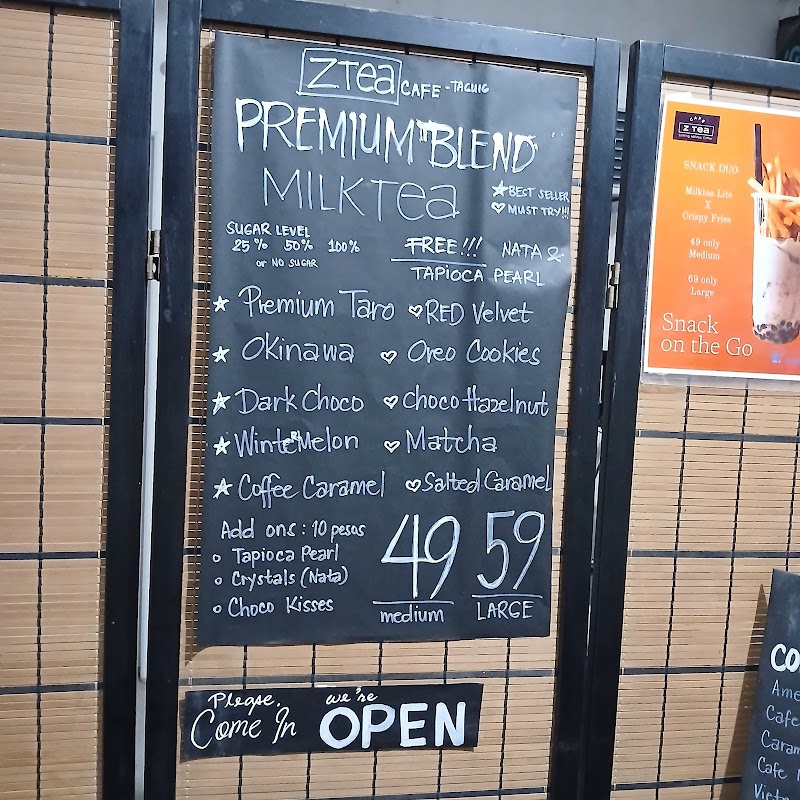 ZTea CAFE - TAGUIG
PREMIUM BLEND
MILKTea
★ BEST SELLER
♡ MUST TRY!!!
SUGAR LEVEL
25% 50% 100%
or NO SUGAR
FREE!!! NATA &
TAPIOCA PEARL
★ Premium Taro
★ Okinawa
★ Dark Choco
★ WinterMelon
★ Coffee Caramel
♡ RED Velvet
♡ Oreo Cookies
♡ Choco Hazelnut
♡ Matcha
♡ Salted Caramel
Add ons: 10 pesos
o Tapioca Pearl
o Crystals (Nata)
o Choco Kisses
49
medium
59
LARGE
Please, we're
Come In OPEN
CAFE
Z TEA
SNACK DUO
Milktea Lite
X
Crispy Fries
49 only
Medium
69 only
Large
Snack
on the Go
Cafe